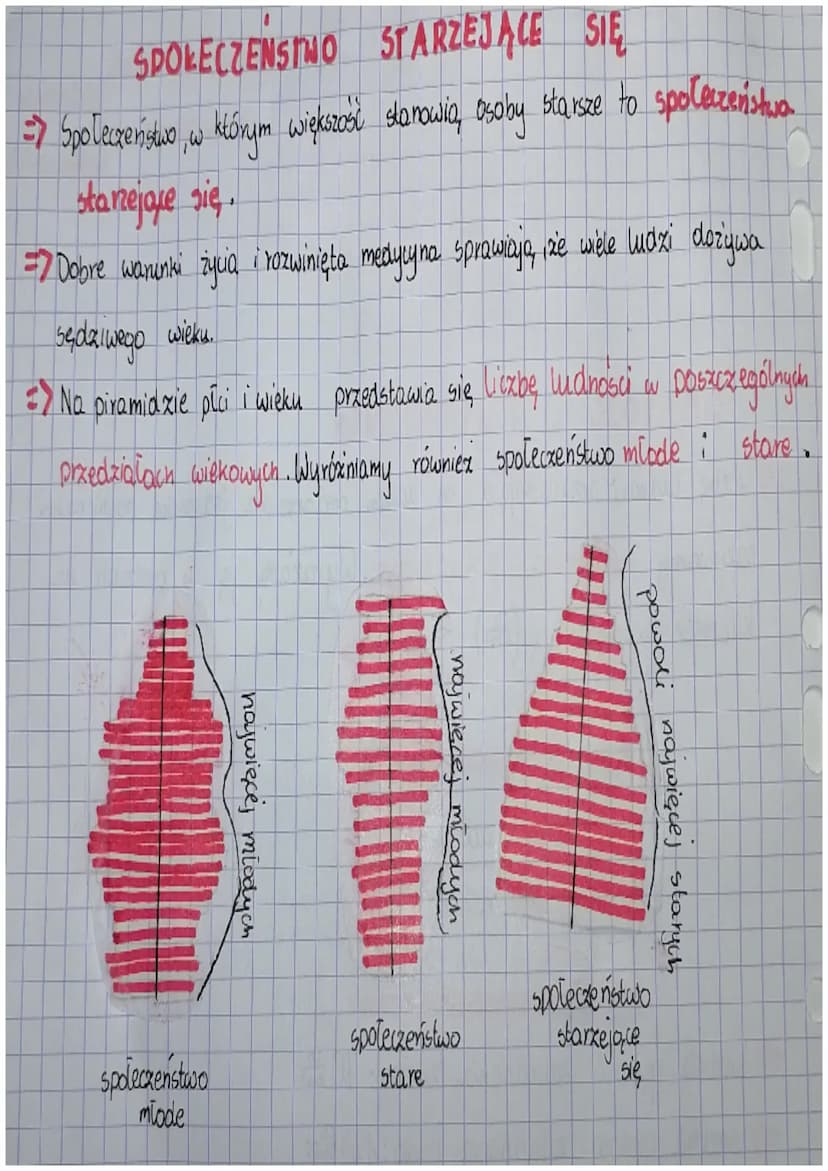 SPOŁECZEŃSTWO STARZEJĄCE SIĘ
=> Społeczeństwo, w którym większość stanowią osoby starsze to społeczeństwa
starzejące się.
=> Dobre warunki życia i rozwinięta medycyna sprawiają, że wiele ludzi dożywa
sędziwego wieku.
=> Na piramidzie płci i wieku przedstawia się liczbę ludności w poszczególnych
przedziałach wiekowych. Wyróżniamy również społeczeństwo młode i stare.
najwięcej młodych
najwięcej młodych
powoli najwięcej starych
społeczeństwo
młode
społeczeństwo
stare
społeczeństwo
starzejące
się